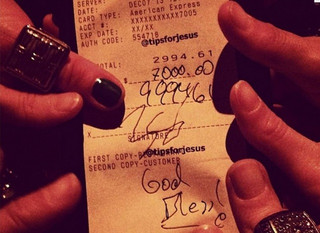 SERVER:
DATE:
CARD TYPE: American Express
ACCT #: XXXXXXXXXXX7005
EXP DATE: XX/XX
AUTH CODE: 554718
@tipsforjesus
TOTAL: 2994.61
7000.00
999461
X
SIGNATURE
@tipsforjesus
FIRST COPY-
SECOND COPY-CUSTOMER
God
Bless!